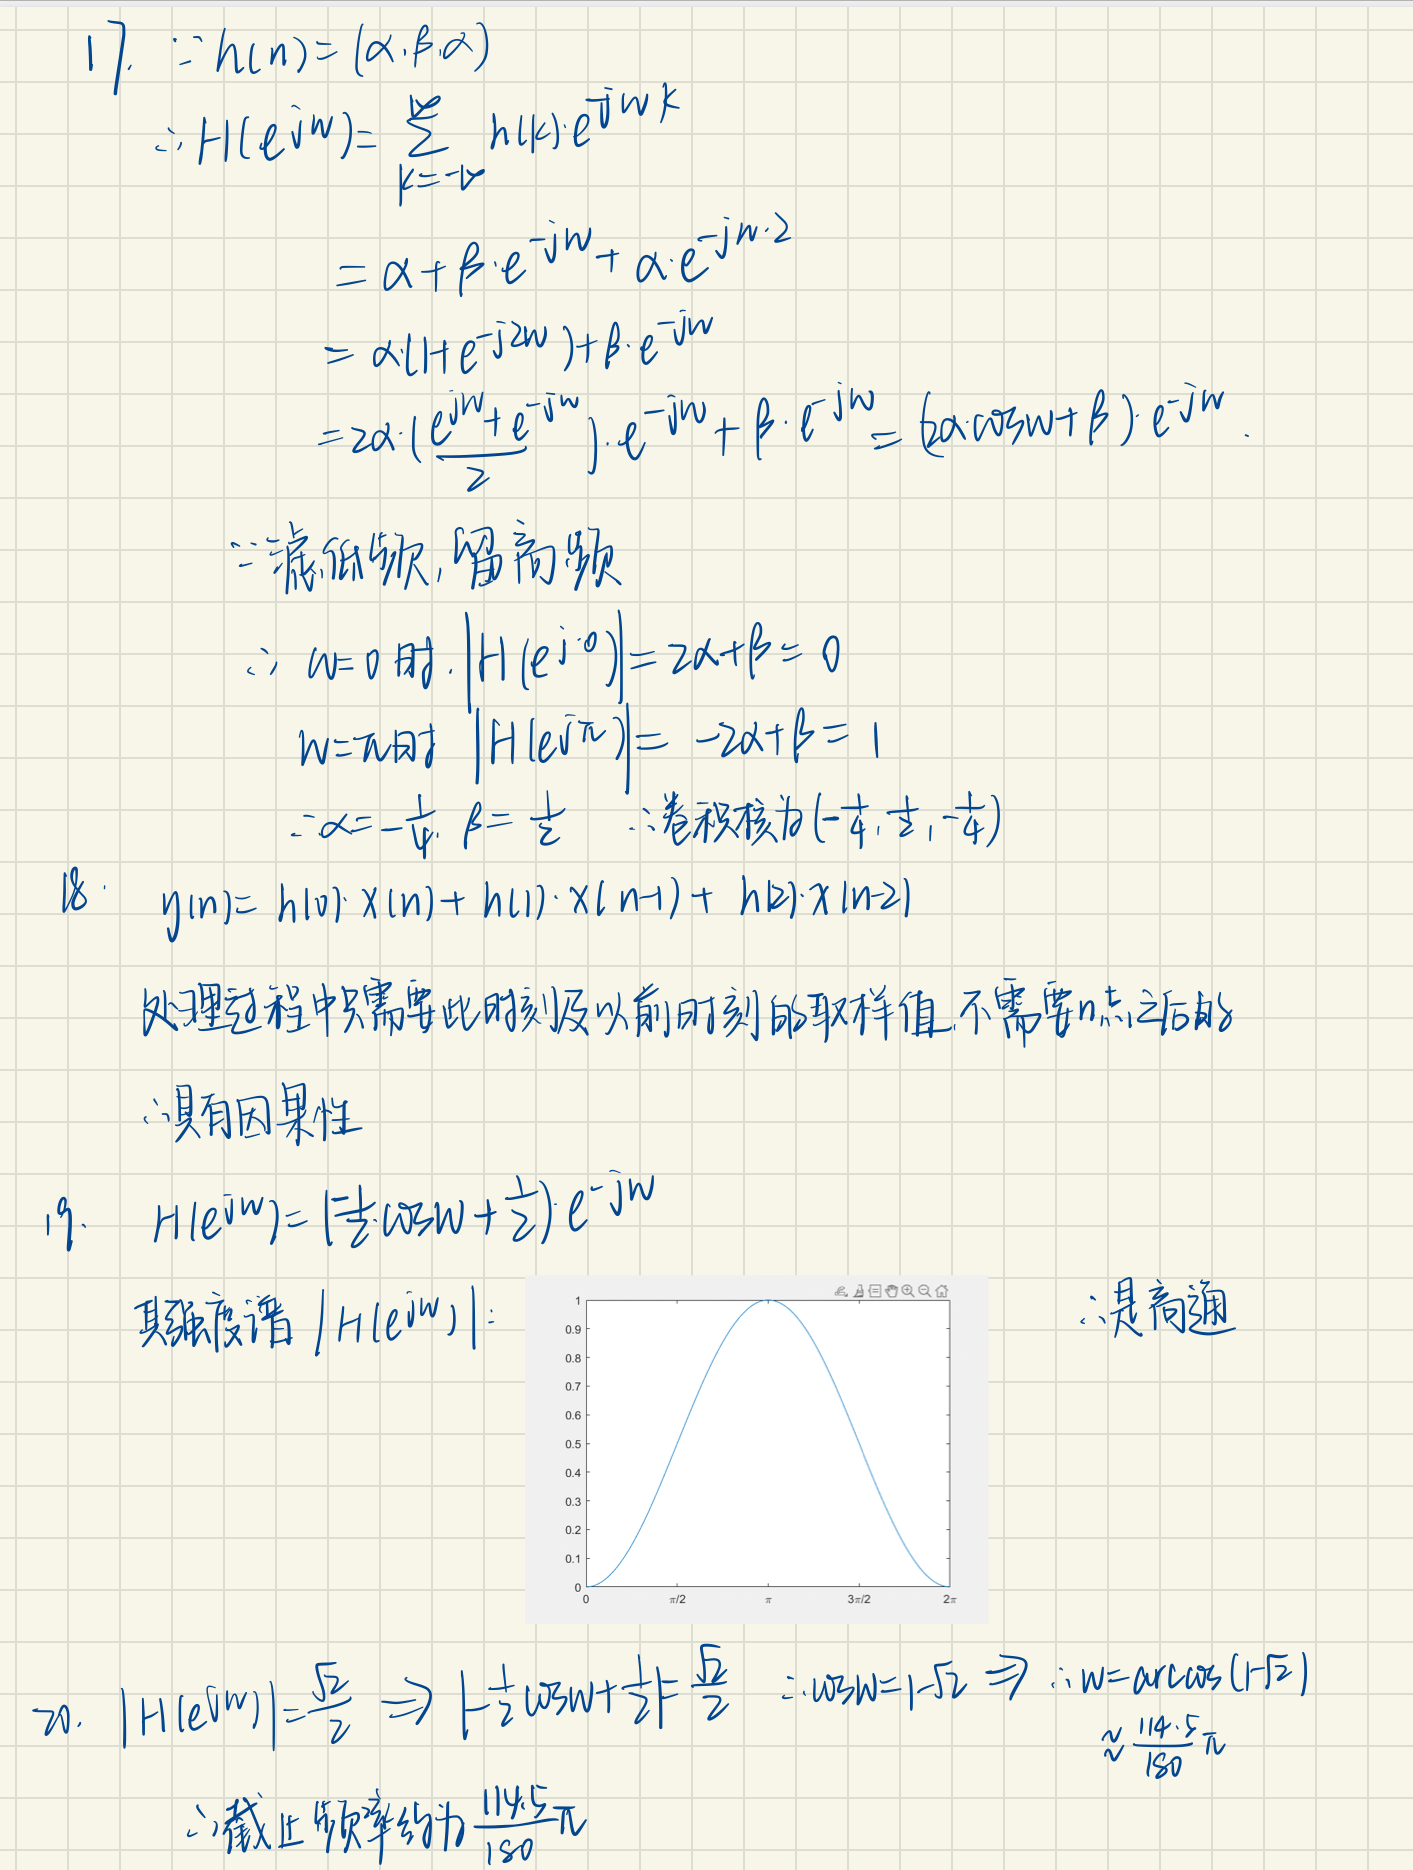 17. ∵ h(n)=(α,β,α)
∴ H(e^{jw})= ∑_{k=-∞}^{∞} h(k)·e^{-jwk}
= α+β·e^{-jw}+α·e^{-jw·2}
= α·(1+e^{-j2w})+β·e^{-jw}
=2α·(\frac{e^{jw}+e^{-jw}}{2})·e^{-jw}+β·e^{-jw}=(2α·cosw+β)·e^{-jw}.
∵滤低频,留高频
∴ w=0时.|H(e^{j·0})|=2α+β=0
w=π时 |H(e^{jπ})|= -2α+β=1
∴α=-\frac{1}{4}, β=\frac{1}{2} ∴卷积核为(-\frac{1}{4},\frac{1}{2},-\frac{1}{4})
18. y(n)= h(0)·x(n)+h(1)·x(n-1)+ h(2)·x(n-2)
处理过程中只需要此时刻及以前时刻的取样值,不需要n点之后的
∴具有因果性
19. H(e^{jw})=(-\frac{1}{2}·cosw+\frac{1}{2})·e^{-jw}
其强度谱 |H(e^{jw})|: ∴是高通
1
0.9
0.8
0.7
0.6
0.5
0.4
0.3
0.2
0.1
0
0 π/2 π 3π/2 2π
20. |H(e^{jw})|=\frac{√2}{2} ⇒ |-\frac{1}{2}cosw+\frac{1}{2}|=\frac{√2}{2} ∴cosw=1-√2 ⇒ ∴w=arccos(1-√2)
≈\frac{114.5}{180}π
∴截止频率约为\frac{114.5}{180}π